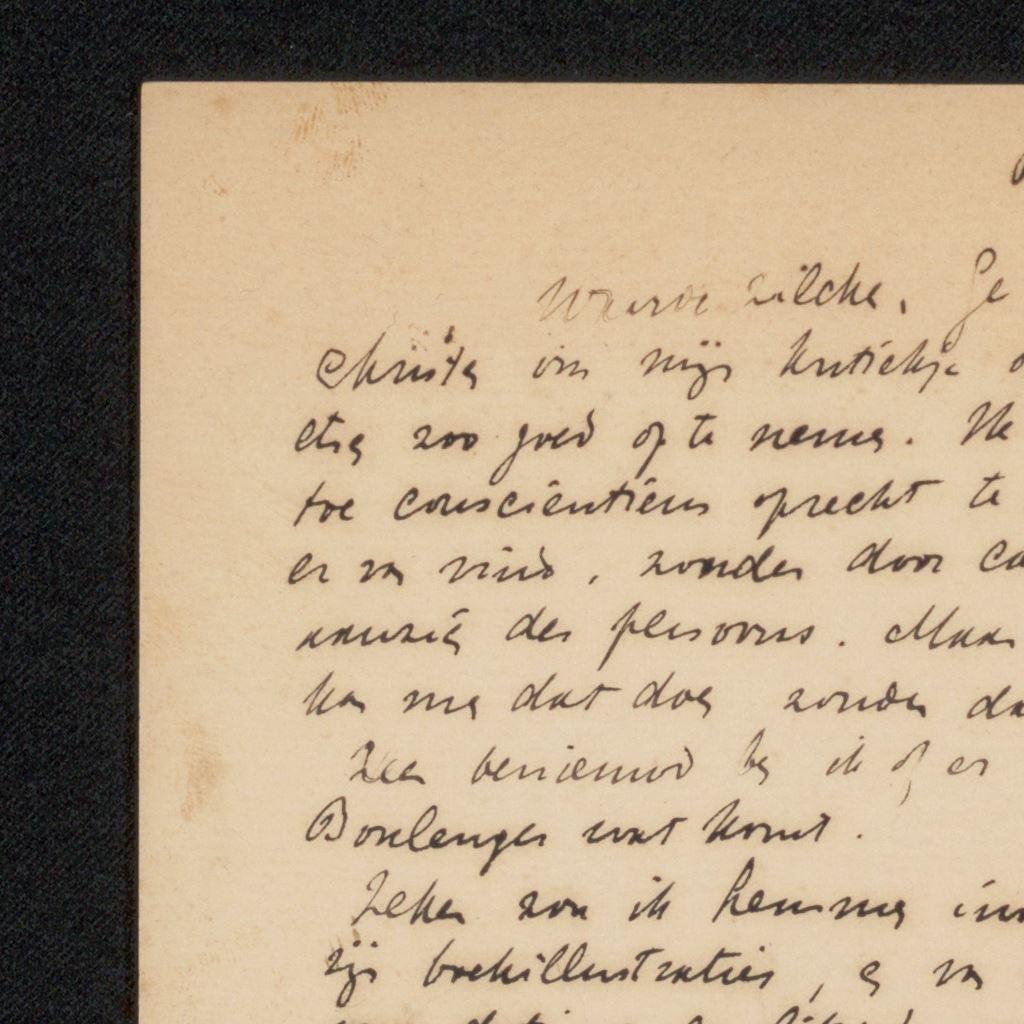 Waarde Zilcke. Ge
Christen om mijn kritiekje
etsen zoo goed op te nemen. Ik
toe consciëntieus oprecht te
er van vind, zonder door
amuzie des persoons. Maar
kan men dat doen zonder
Zeer benieuwd ben ik of er
Boulenger wat komt.
Zeker zou ik hem
zijn boekillustraties, en van